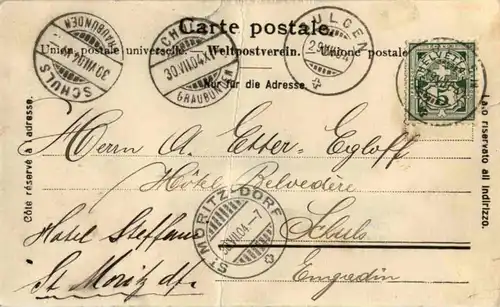 Carte postale.
Union postale universelle. Weltpostverein. Unione postale
Nur für die Adresse.
Côté réservé à l'adresse.
Lato riservato all indirizzo.
SCHULS
30.VII.04
GRAUBÜNDEN
30.VII.04.X
GRAUBÜNDEN
29.VII.04
HELVETIA
5
Herrn A. Etter-Egloff
Hôtel Belvedère
Schuls
Engadin
Hotel Steffani
St. Moritz df.
ST. MORITZ-DORF
30.VII.04.-7